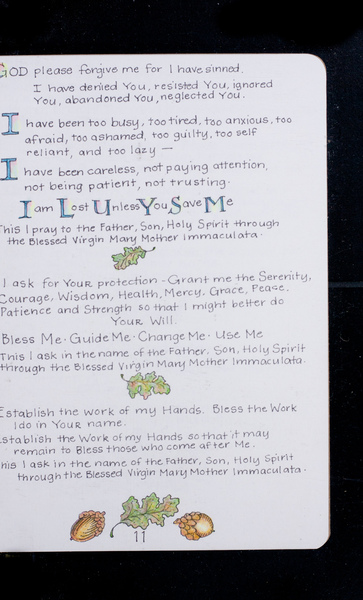 GOD please forgive me for I have sinned.
I have denied You, resisted You, ignored
You, abandoned You, neglected You.
I have been too busy, too tired, too anxious, too
afraid, too ashamed, too guilty, too self
reliant, and too lazy —
I have been careless, not paying attention,
not being patient, not trusting.
I am Lost Unless You Save Me
This I pray to the Father, Son, Holy Spirit through
the Blessed Virgin Mary Mother Immaculata.
I ask for Your protection - Grant me the Serenity,
Courage, Wisdom, Health, Mercy, Grace, Peace,
Patience and Strength so that I might better do
Your Will.
Bless Me · Guide Me · Change Me · Use Me
This I ask in the name of the Father, Son, Holy Spirit
through the Blessed Virgin Mary Mother Immaculata.
Establish the work of my Hands. Bless the Work
I do in Your name.
Establish the Work of my Hands so that it may
remain to Bless those who come after Me.
This I ask in the name of the Father, Son, Holy Spirit
through the Blessed Virgin Mary Mother Immaculata.
11